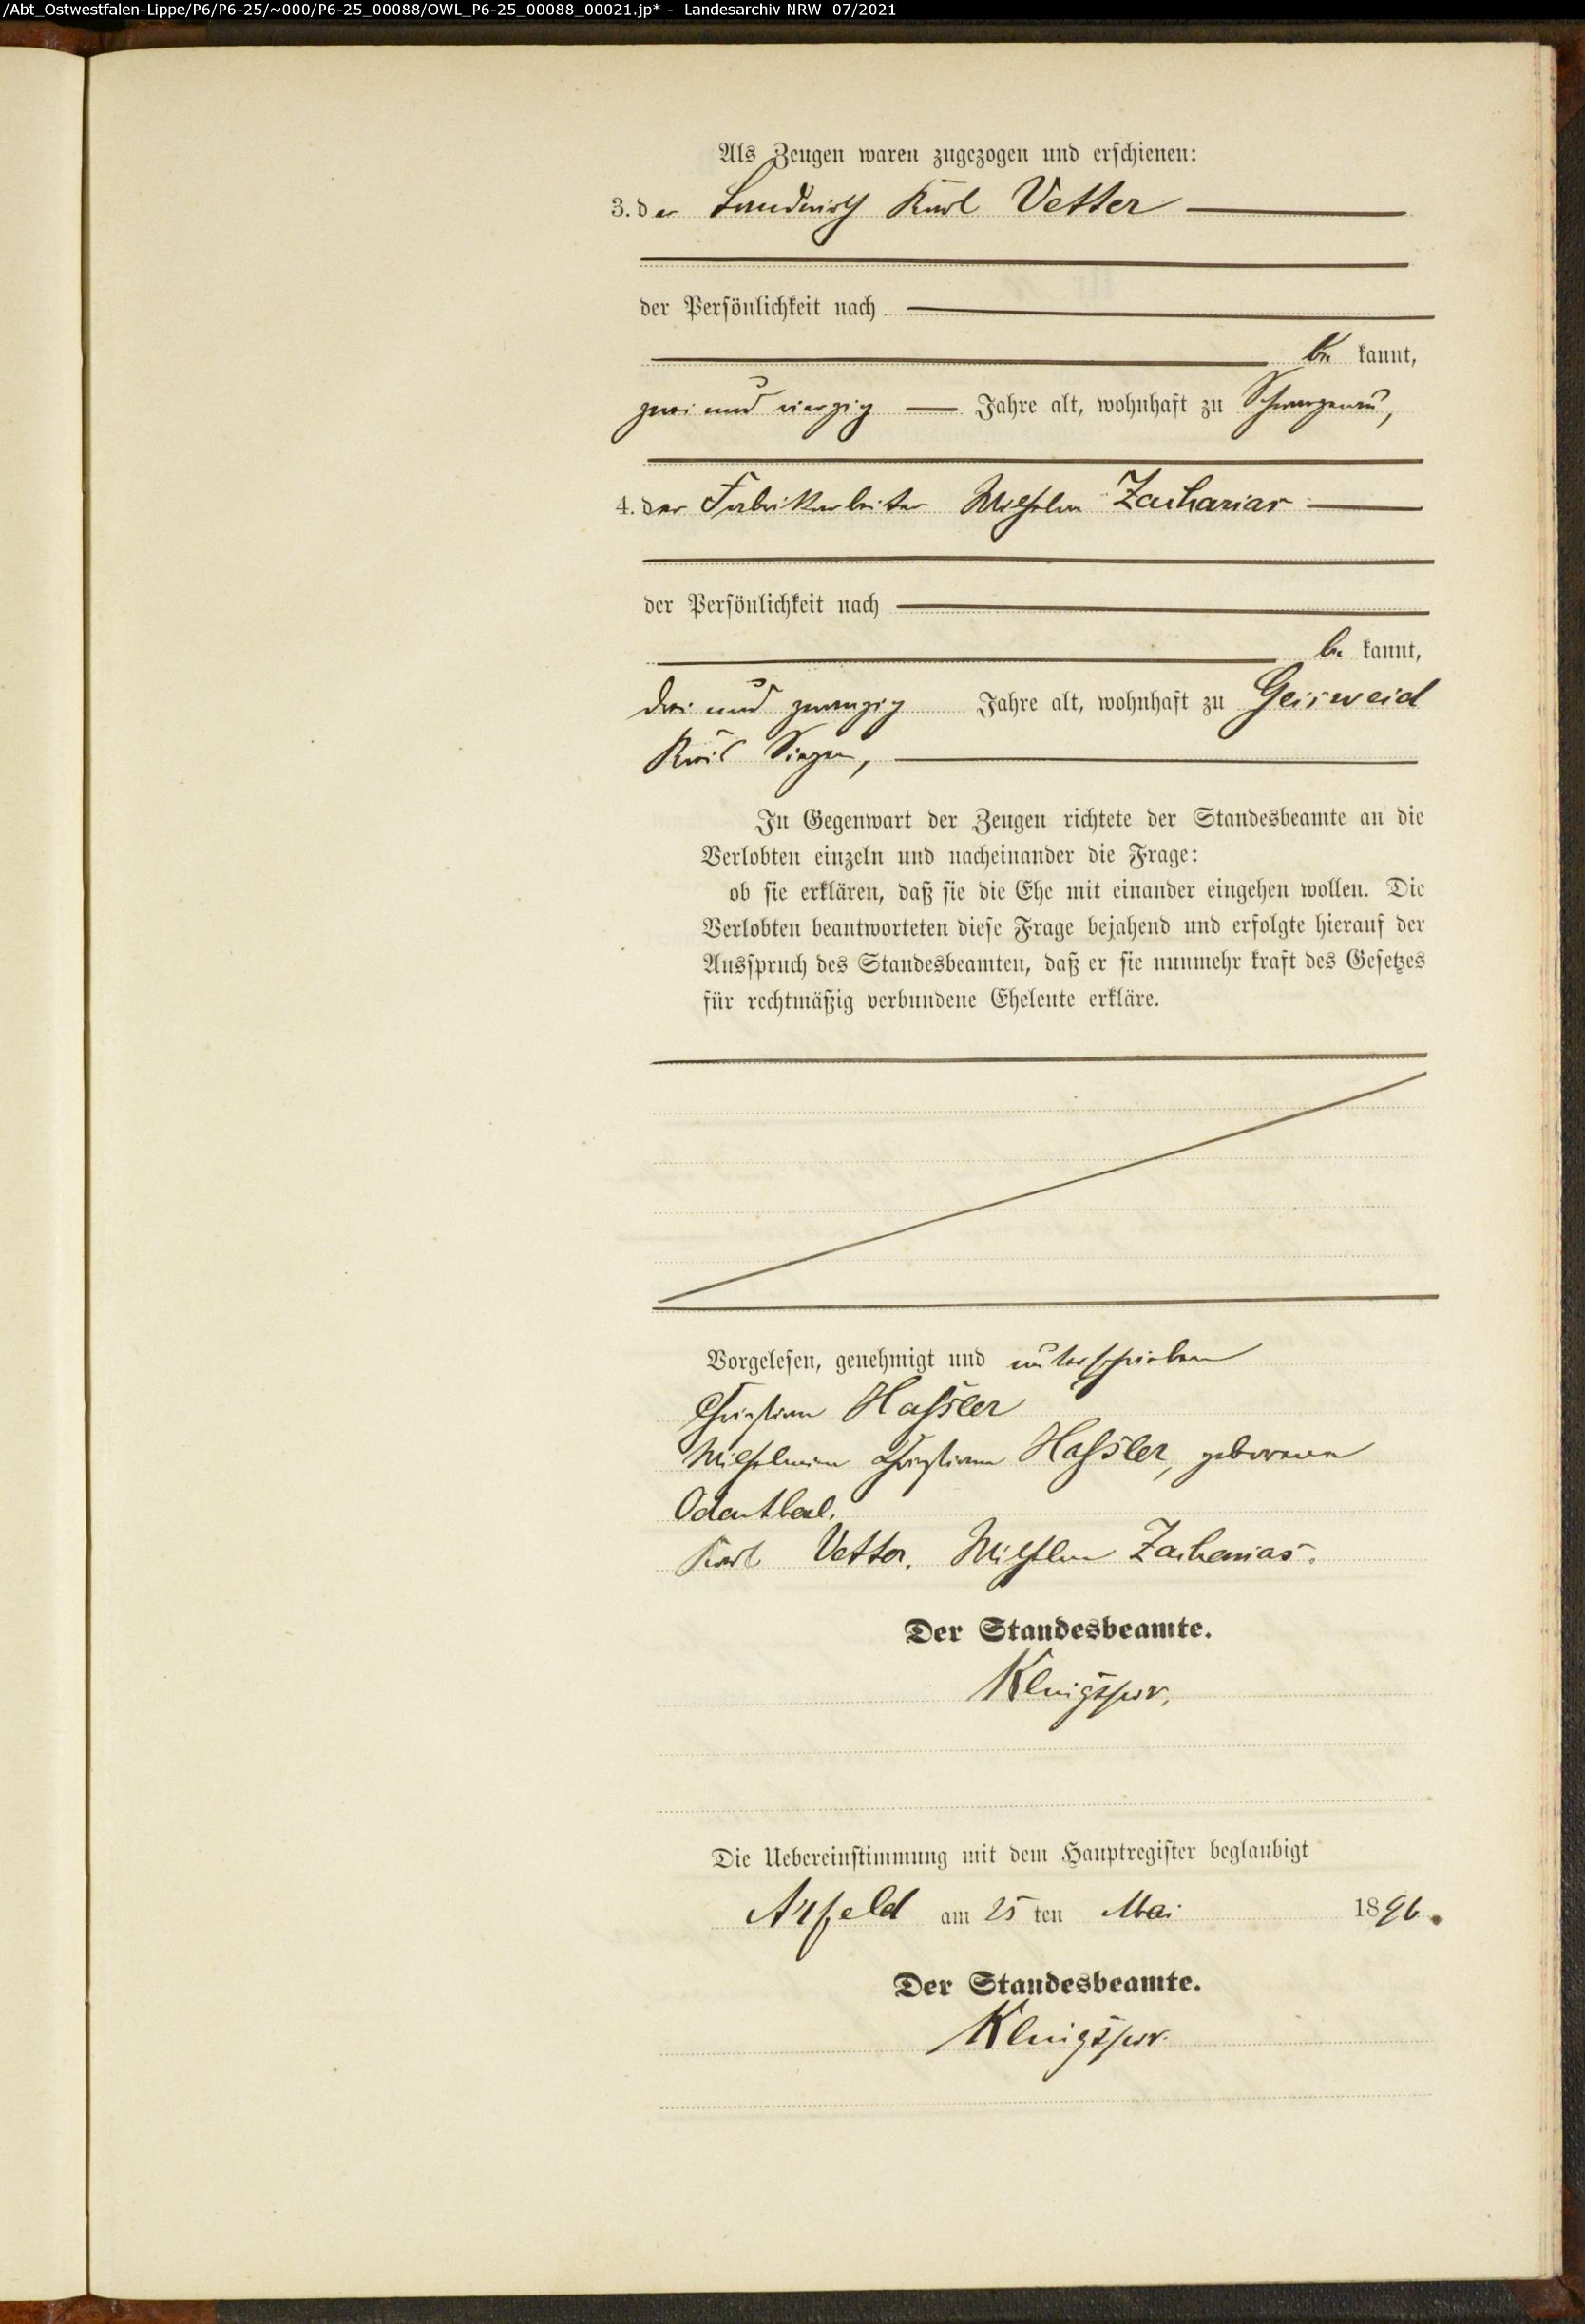 /Abt_Ostwestfalen-Lippe/P6/P6-25/~000/P6-25_00088/OWL_P6-25_00088_00021.jp* - Landesarchiv NRW 07/2021
Als Zeugen waren zugezogen und erschienen:
3. der Landwirth Karl Vetter
der Persönlichkeit nach
be kannt,
zwei und vierzig Jahre alt, wohnhaft zu
4. der Fabrikarbeiter Wilhelm Zacharias
der Persönlichkeit nach
be kannt,
drei und zwanzig Jahre alt, wohnhaft zu Geisweid
Kreis Siegen,
In Gegenwart der Zeugen richtete der Standesbeamte an die
Verlobten einzeln und nacheinander die Frage:
ob sie erklären, daß sie die Ehe mit einander eingehen wollen. Die
Verlobten beantworteten diese Frage bejahend und erfolgte hierauf der
Ausspruch des Standesbeamten, daß er sie nunmehr kraft des Gesetzes
für rechtmäßig verbundene Eheleute erkläre.
Vorgelesen, genehmigt und unterschrieben
Christian Hassler
Wilhelmine Christiane Hassler, geborene
Odenthal.
Karl Vetter. Wilhelm Zacharias.
Der Standesbeamte.
Die Uebereinstimmung mit dem Hauptregister beglaubigt
Arfeld am 25 ten Mai 1896.
Der Standesbeamte.